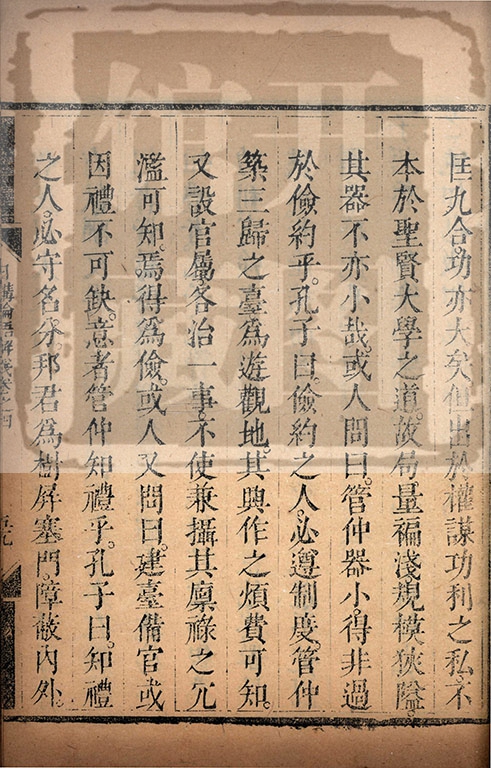 匡九合。功亦大矣。但出於權謀功利之私。不
本於聖賢大學之道。故局量褊淺。規模狹隘。
其器不亦小哉。或人問曰。管仲器小。得非過
於儉約乎。孔子曰。儉約之人。必遵制度。管仲
築三歸之臺。為遊觀地。其興作之煩費可知。
又設官屬。各治一事。不使兼攝。其廩祿之冗
濫可知。焉得為儉。或人又問曰。建臺備官。或
因禮不可缺。意者管仲知禮乎。孔子曰。知禮
之人。必守名分。邦君為樹屏塞門。障蔽內外。